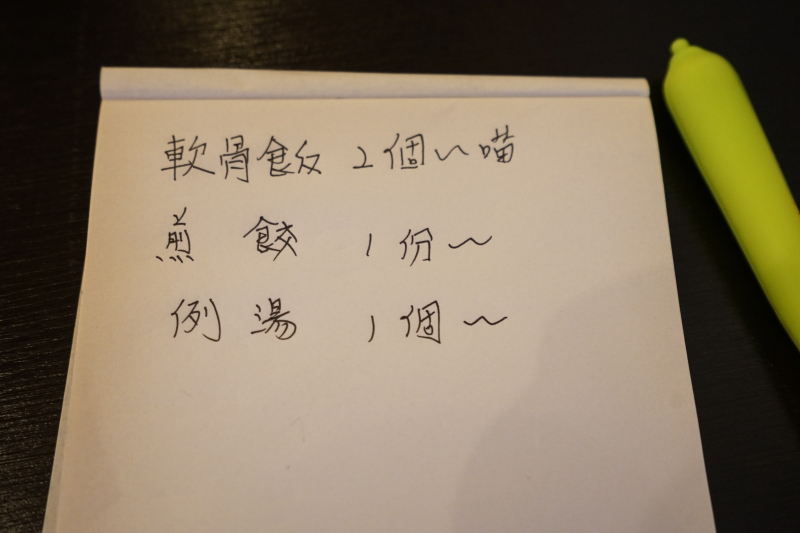 軟骨飯 2個~喵
煎餃 1份~
例湯 1個~